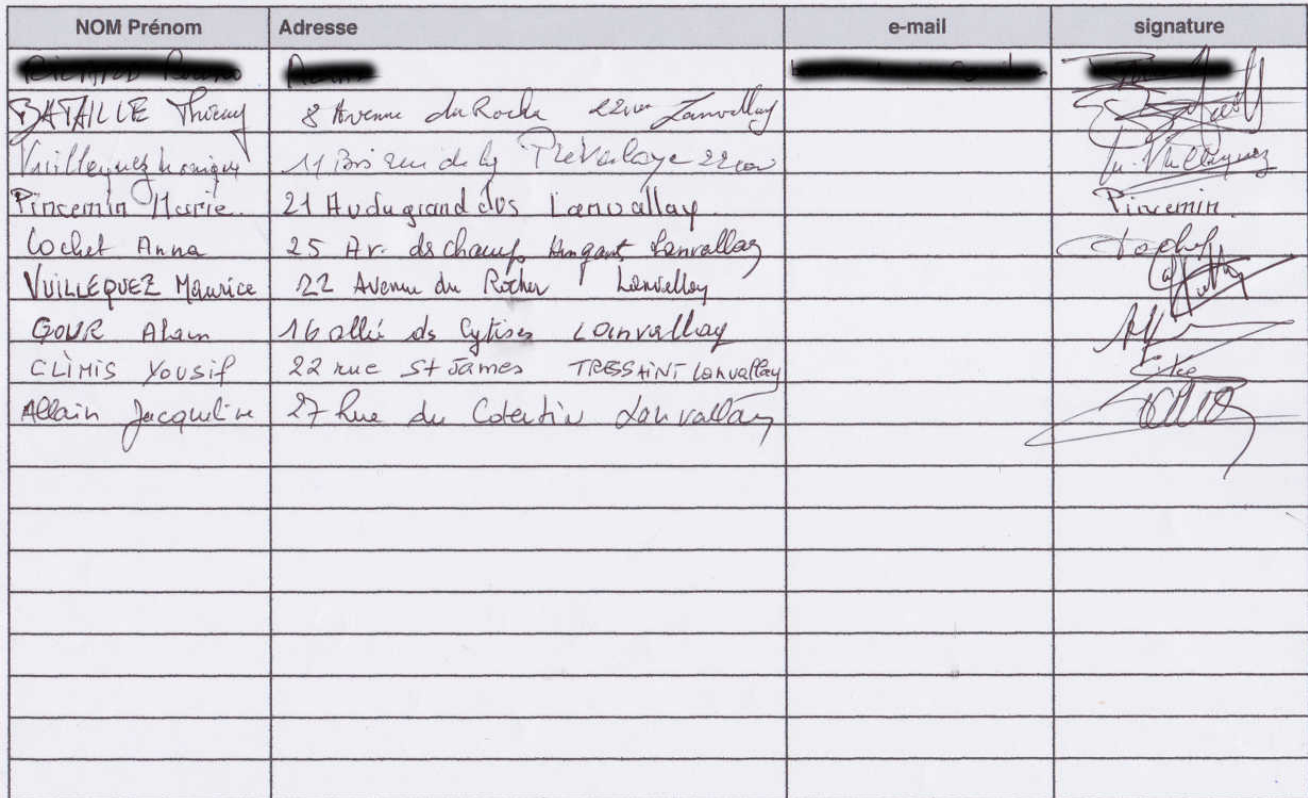 NOM Prénom Adresse e-mail signature
BATAILLE Thierry 8 Avenue du Roche Lanvallay
Vuillequez Monique 11 Bis rue de la Prévalaye 22100
Pincemin Marie. 21 Av du grand clos Lanvallay Pincemin.
Cochet Anna 25 Av. ds champs Hingant Lanvallay
VUILLEQUEZ Maurice 22 Avenue du Rocher Lanvallay
GOUR Alain 16 allée ds Cytises Lanvallay
CLÌMIS Yousif 22 rue St James TRESSAINT Lanvallay
Allain Jacqueline 27 Rue du Cotentin Lanvallay